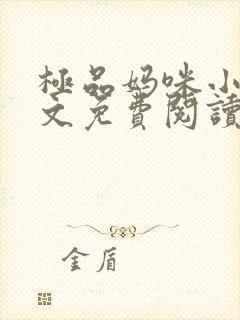 極品妈咪小
文免費閱讀
金盾